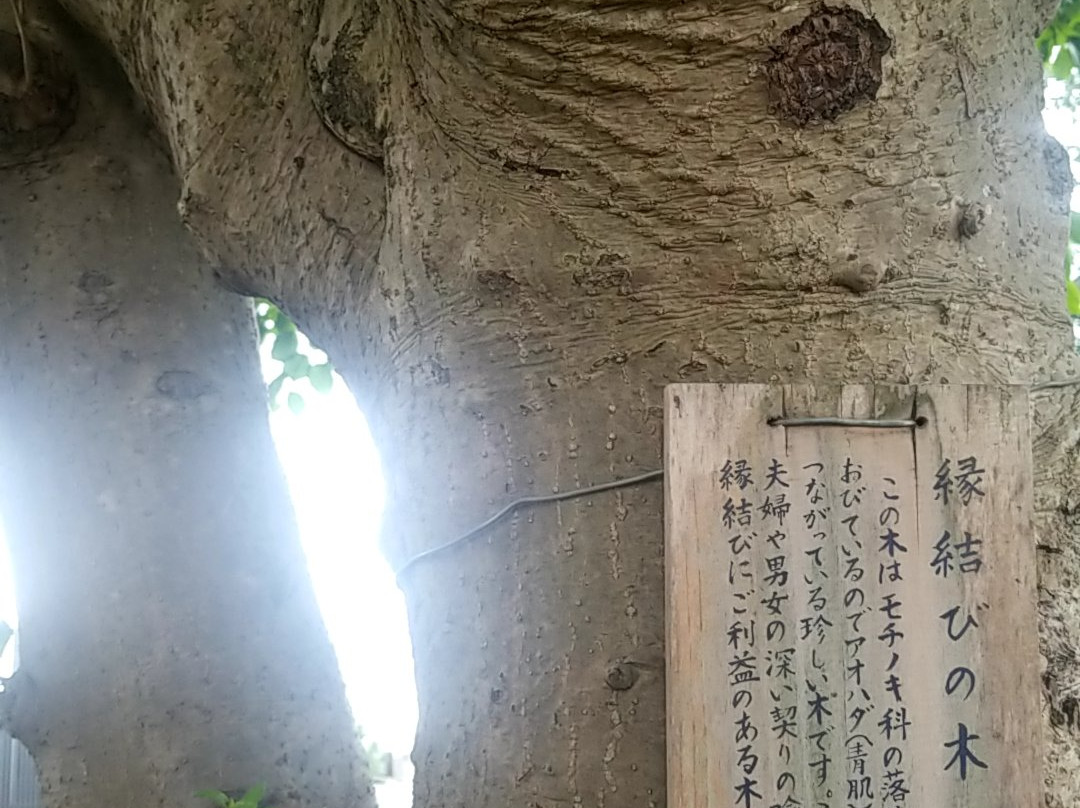 縁結びの木
この木はモチノキ科の落
おびているのでアオハダ(青肌
つながっている珍しい木です。
夫婦や男女の深い契りの
縁結びにご利益のある木